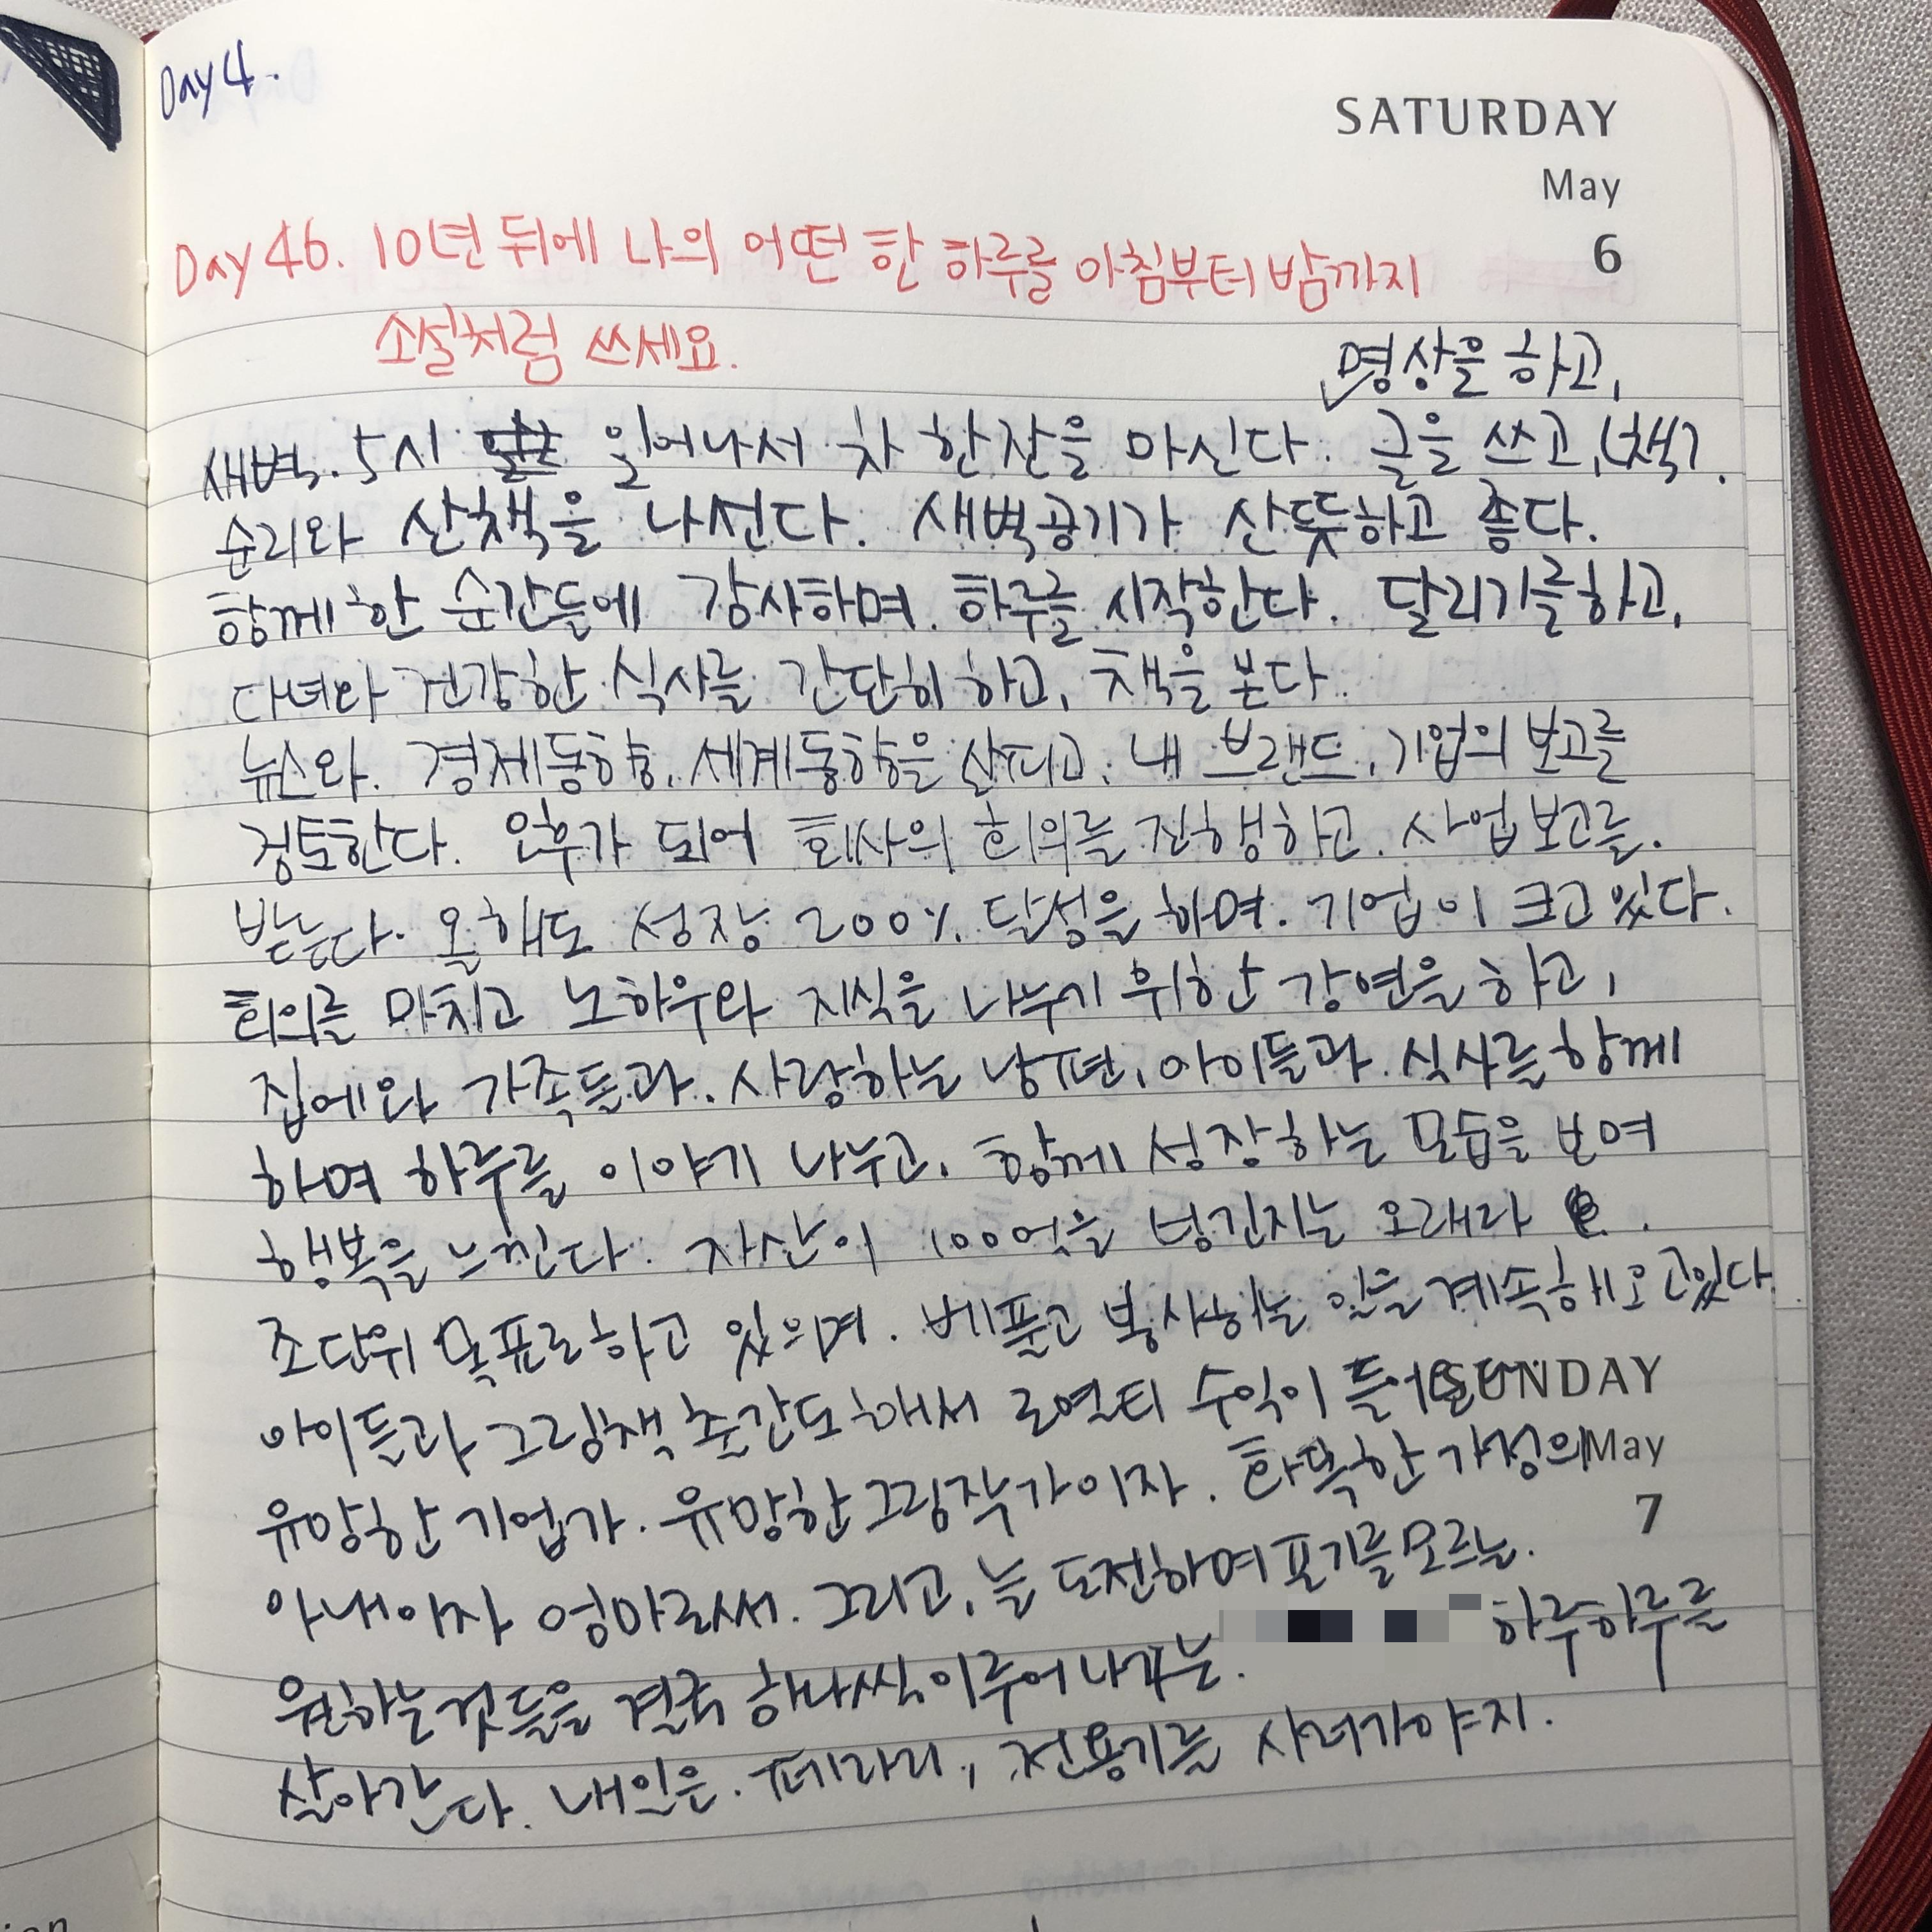 Day 4.
SATURDAY
May
6
Day 46. 10년 뒤에 나의 어떤 한 하루를 아침부터 밤까지
소설처럼 쓰세요.
명상을 하고,
새벽. 5시 일어나서 차 한잔을 마신다. 글을 쓰고,
순리와 산책을 나선다. 새벽공기가 산뜻하고 좋다.
함께한 순간들에 감사하며. 하루를 시작한다. 달리기를하고,
다녀와 건강한 식사를 간단히 하고, 책을 본다.
뉴스와. 경제동향, 세계동향을 살피고, 내 브랜드, 기업의 보고를
검토한다. 오후가 되어 회사의 회의를 진행하고. 사업보고를.
받는다. 올해도 성장 200% 달성을 하며. 기업이 크고있다.
회의를 마치고 노하우와 지식을 나누기 위한 강연을 하고,
집에와 가족들과. 사랑하는 남편, 아이들과 식사를 함께
하며 하루를 이야기 나누고. 함께 성장하는 모습을 보며
행복을 느낀다. 자산이 100억을 넘긴지는 오래라
조단위 목표로하고 있으며. 베풀고 봉사하는 일을 계속해오고있다.
아이들과 그림책 출간도해서 로열티 수익이
SUNDAY
유망한 기업가. 유망한그림작가이자. 화목한가정의
May
7
아내이자 엄마로써. 그리고, 늘 도전하며포기를모르는.
원하는것들을 결국 하나씩이루어나가는. 하루하루를
살아간다. 내일은. 페라리, 전용기를 사러가야지.